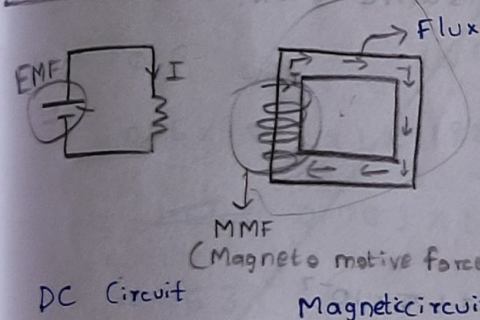 Flux
EMF
I
MMF
(Magneto motive force
DC Circuit
Magneticcircui